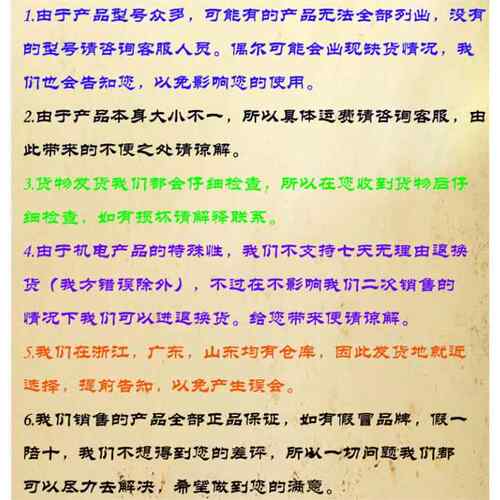 1.由于产品型号众多，可能有的产品无法全部列出，没有
的型号请咨询客服人员。偶尔可能会出现缺货情况，我
们也会告知您，以免影响您的使用。
2.由于产品本身大小不一，所以具体运费请咨询客服，由
此带来的不便之处请谅解。
3.货物发货我们都会仔细检查，所以在您收到货物后仔
细检查，如有损坏请解释联系。
4.由于机电产品的特殊性，我们不支持七天无理由退换
货（我方错误除外），不过在不影响我们二次销售的
情况下我们可以进退换货。给您带来便请谅解。
5.我们在浙江，广东，山东均有仓库，因此发货地就近
选择，提前告知，以免产生误会。
6.我们销售的产品全部正品保证，如有假冒品牌，假一
陪十，我们不想得到您的差评，所以一切问题我们都
可以尽力去解决，希望做到您的满意。